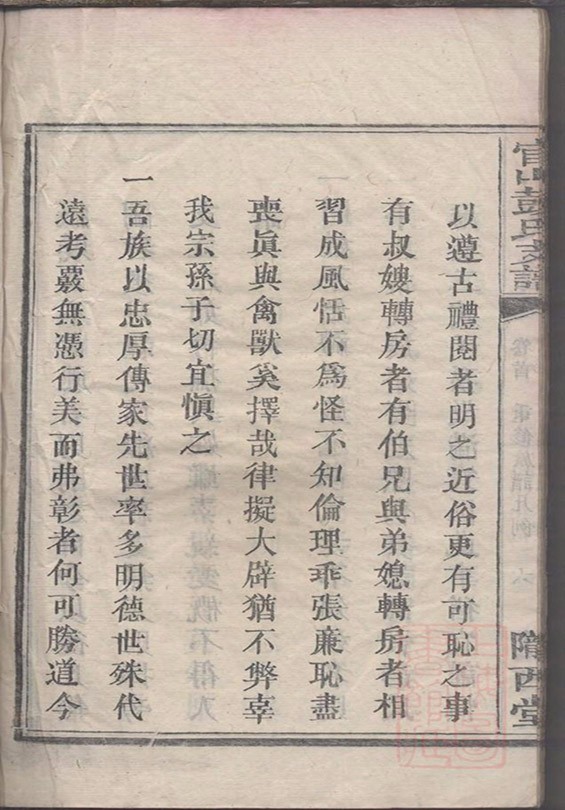 官山彭氏支譜
隴西堂
以遵古禮閱者明之近俗更有可恥之事
有叔嫂轉房者有伯兄與弟媳轉房者相
習成風恬不爲怪不知倫理乖張廉恥盡
喪眞與禽獸奚擇哉律擬大辟猶不弊辜
我宗孫子切宜愼之
一吾族以忠厚傳家先世率多明德世殊代
遠考覈無憑行美而弗彰者何可勝道今